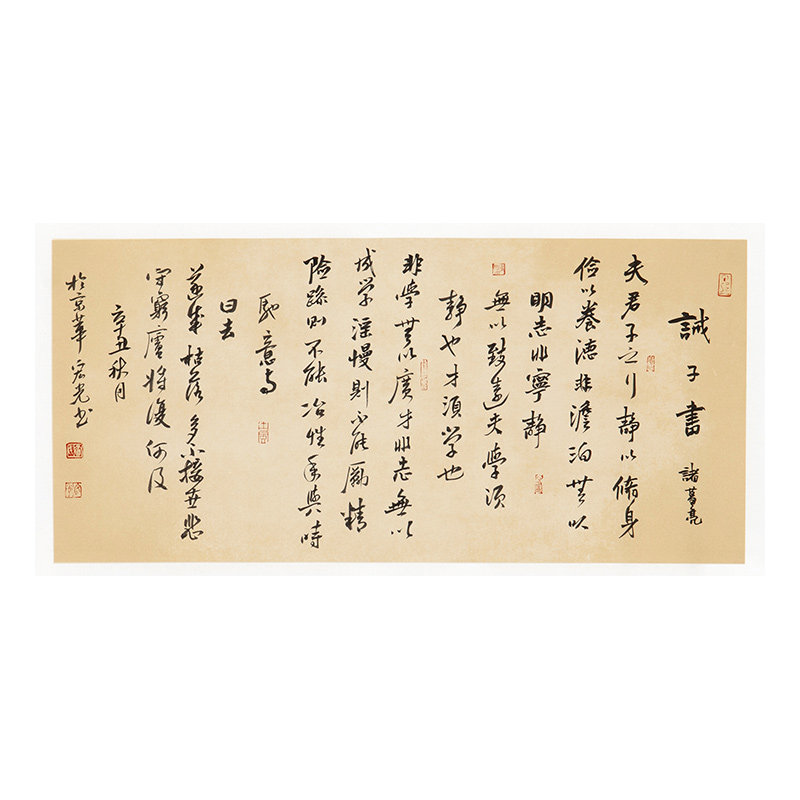 誡子書 諸葛亮
夫君子之行靜以脩身
儉以養德非澹泊無以
明志非寧靜
無以致遠夫學須
靜也才須学也
非學無以廣才非志無以
成学淫慢則不能勵精
險躁則不能冶性年與時
馳意與
日去
遂成枯落多不接世悲
守窮廬將復何及
辛丑秋月
於京華宏光书